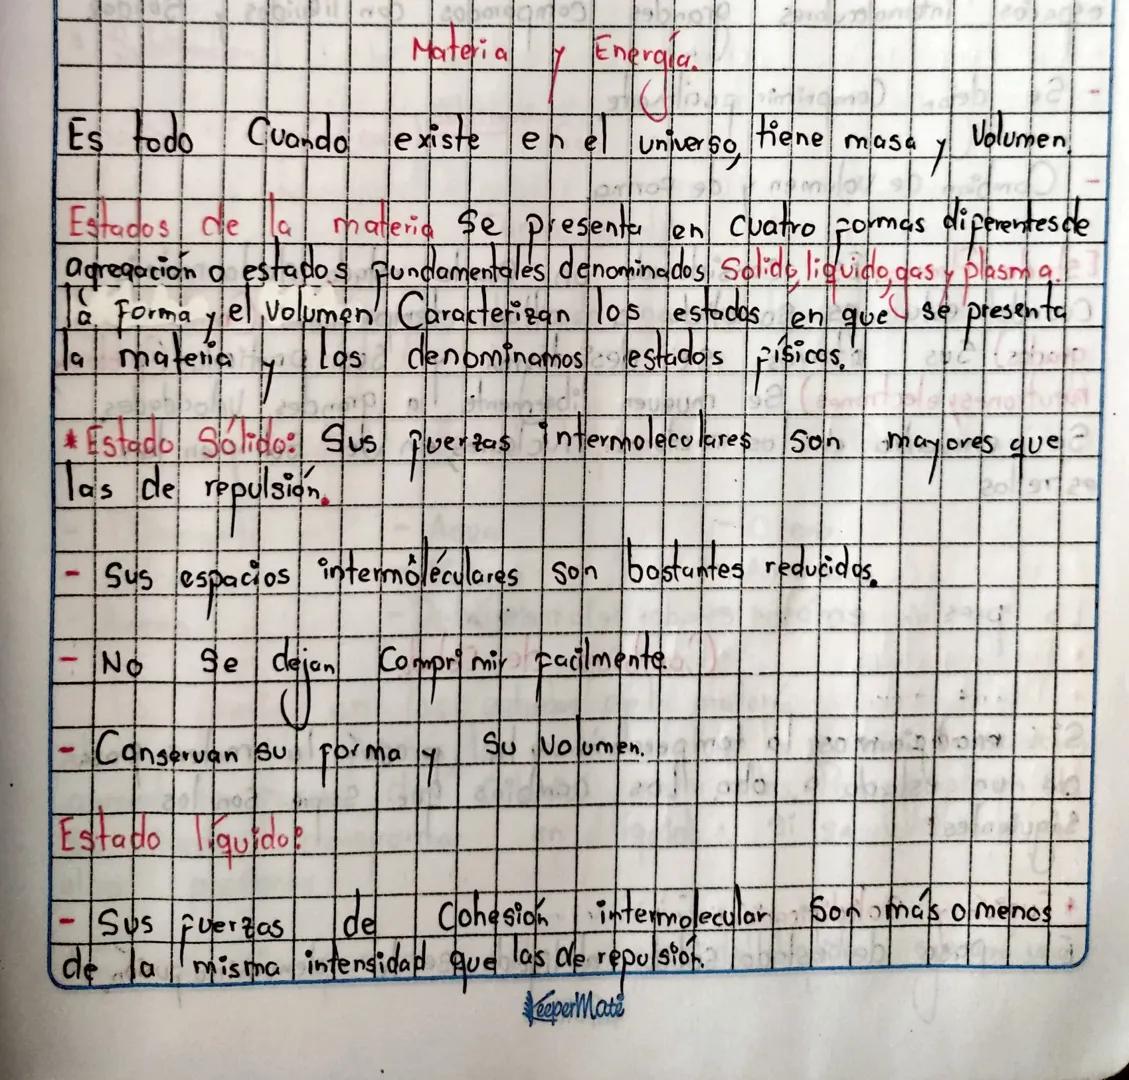 Materia y Energía.
Es todo Cuando existe en el universo, tiene masa y Volumen.
Estados de la materia Se presenta en cuatro formas diferentes de
agregación o estados fundamentales denominados Solido, liquido, gas y plasma.
la forma y el volumen Caracterizan los estados en que se presenta
la materia y los denominamos estados físicos.
* Estado Sólido: Sus fuerzas intermoleculares son mayores que
las de repulsión.
- Sus espacios intermoléculares son bastantes reducidos.
- No se dejan Comprimir facilmente.
- Conservan su forma y su volumen.
Estado líquido:
- Sus fuerzas de Cohesión intermolecular Son más o menos
de la misma intensidad que las de repulsión.
KeeperMate